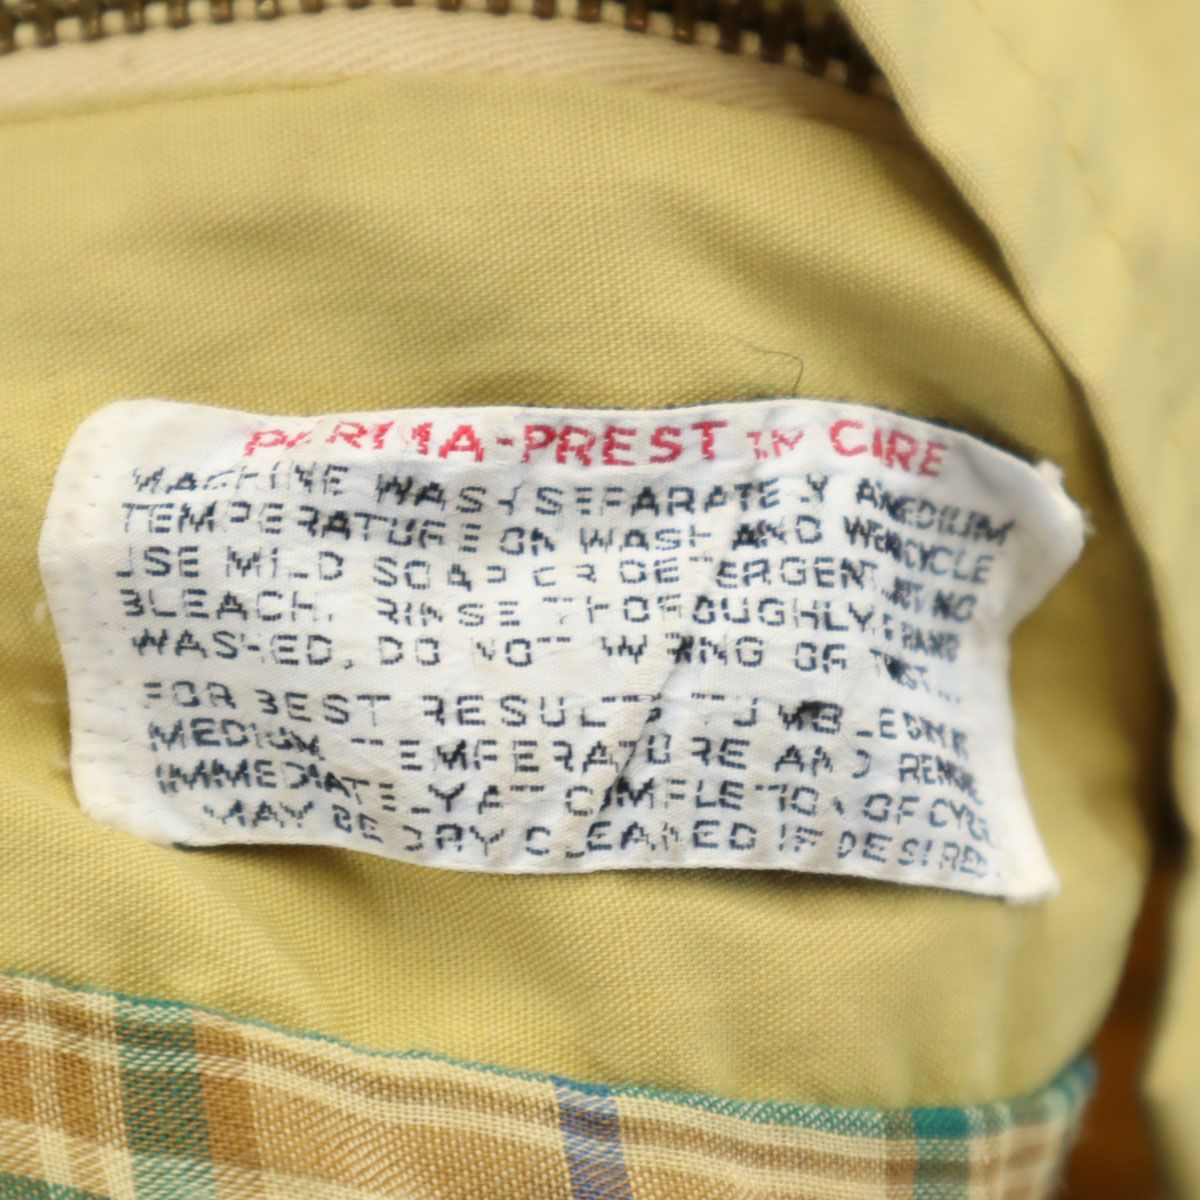 PERMA-PREST IN CIRE
MACHINE WASH SEPARATELY MEDIUM
TEMPERATURE ON WASH AND WEAR CYCLE
USE MILD SOAP OR DETERGENT BUT NO
BLEACH. RINSE THOROUGHLY. IF HAND
WASHED, DO NOT WRING OR TWIST...
FOR BEST RESULTS TUMBLE DRY
MEDIUM TEMPERATURE AND REMOVE
IMMEDIATELY AT COMPLETION OF CYCLE
MAY BE DRY CLEANED IF DESIRED.